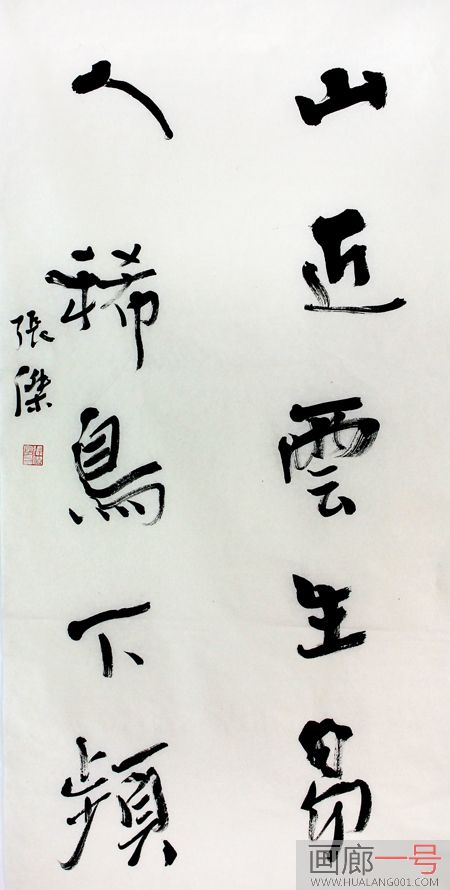 山近雲生易
人稀鳥下頻
張傑
画廊一号
WWW.HUALANG001.COM